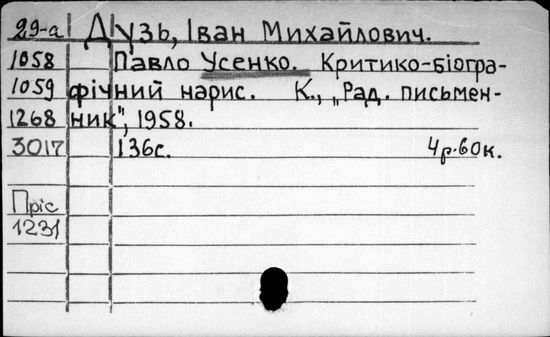 29-а Дузь, Іван Михайлович.
1058 Павло Усенко. Критико-біогра-
1059 фічний нарис. К., „Рад. письмен-
1268 ник", 1958.
3017 136с. 4р.60к.
Пріс
1231